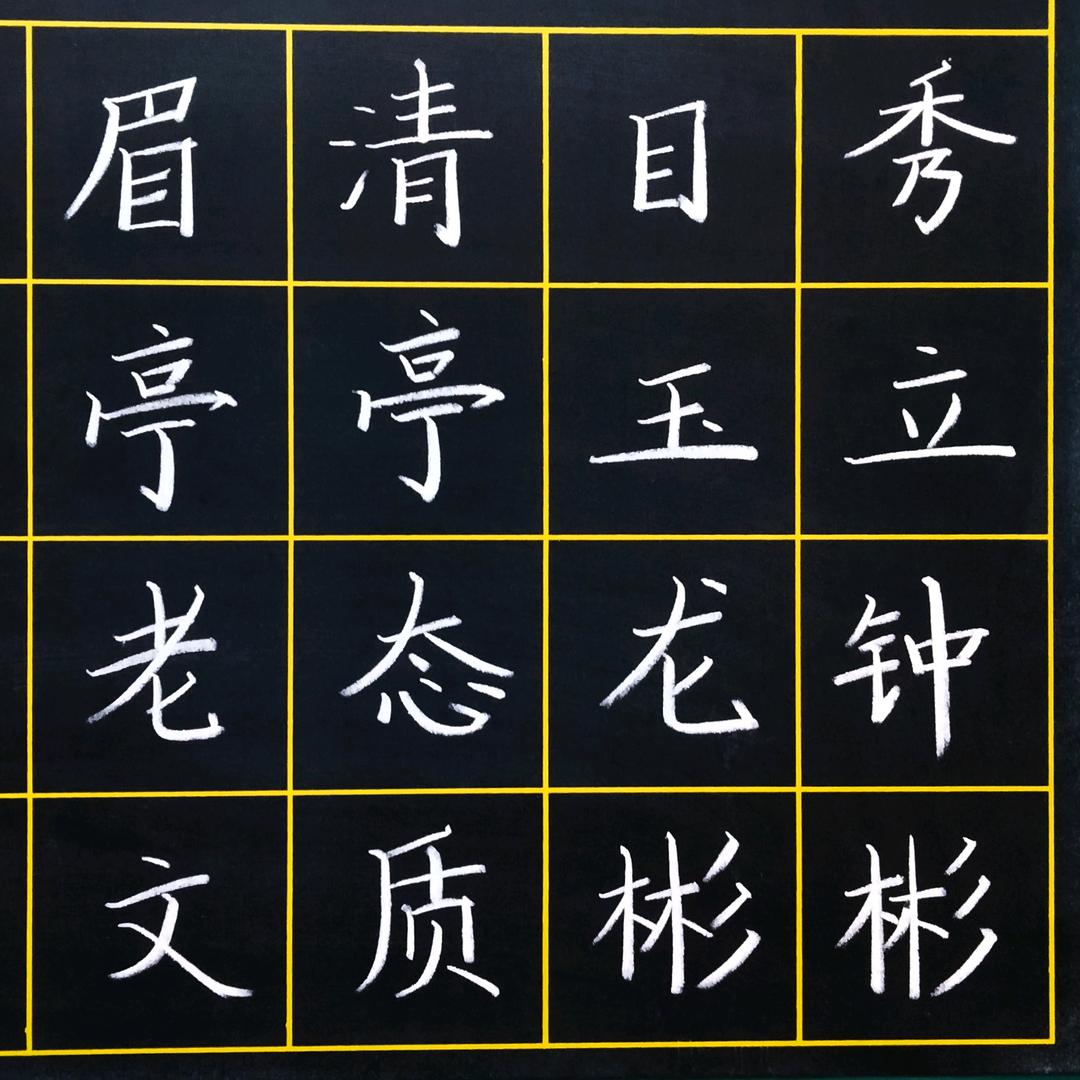 眉清目秀
亭亭玉立
老态龙钟
文质彬彬